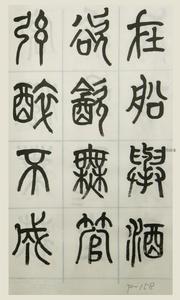 在船舉酒
欲㱃無管
弦醉不成
P-158